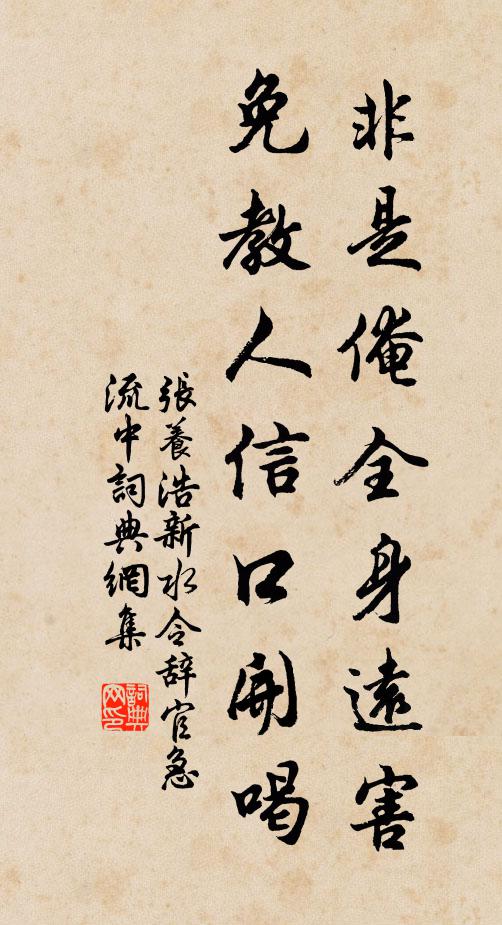 非是俺全身遠害
免教人信口開喝
張養浩新水令辞官急
流中詞典網集
詞典
网印